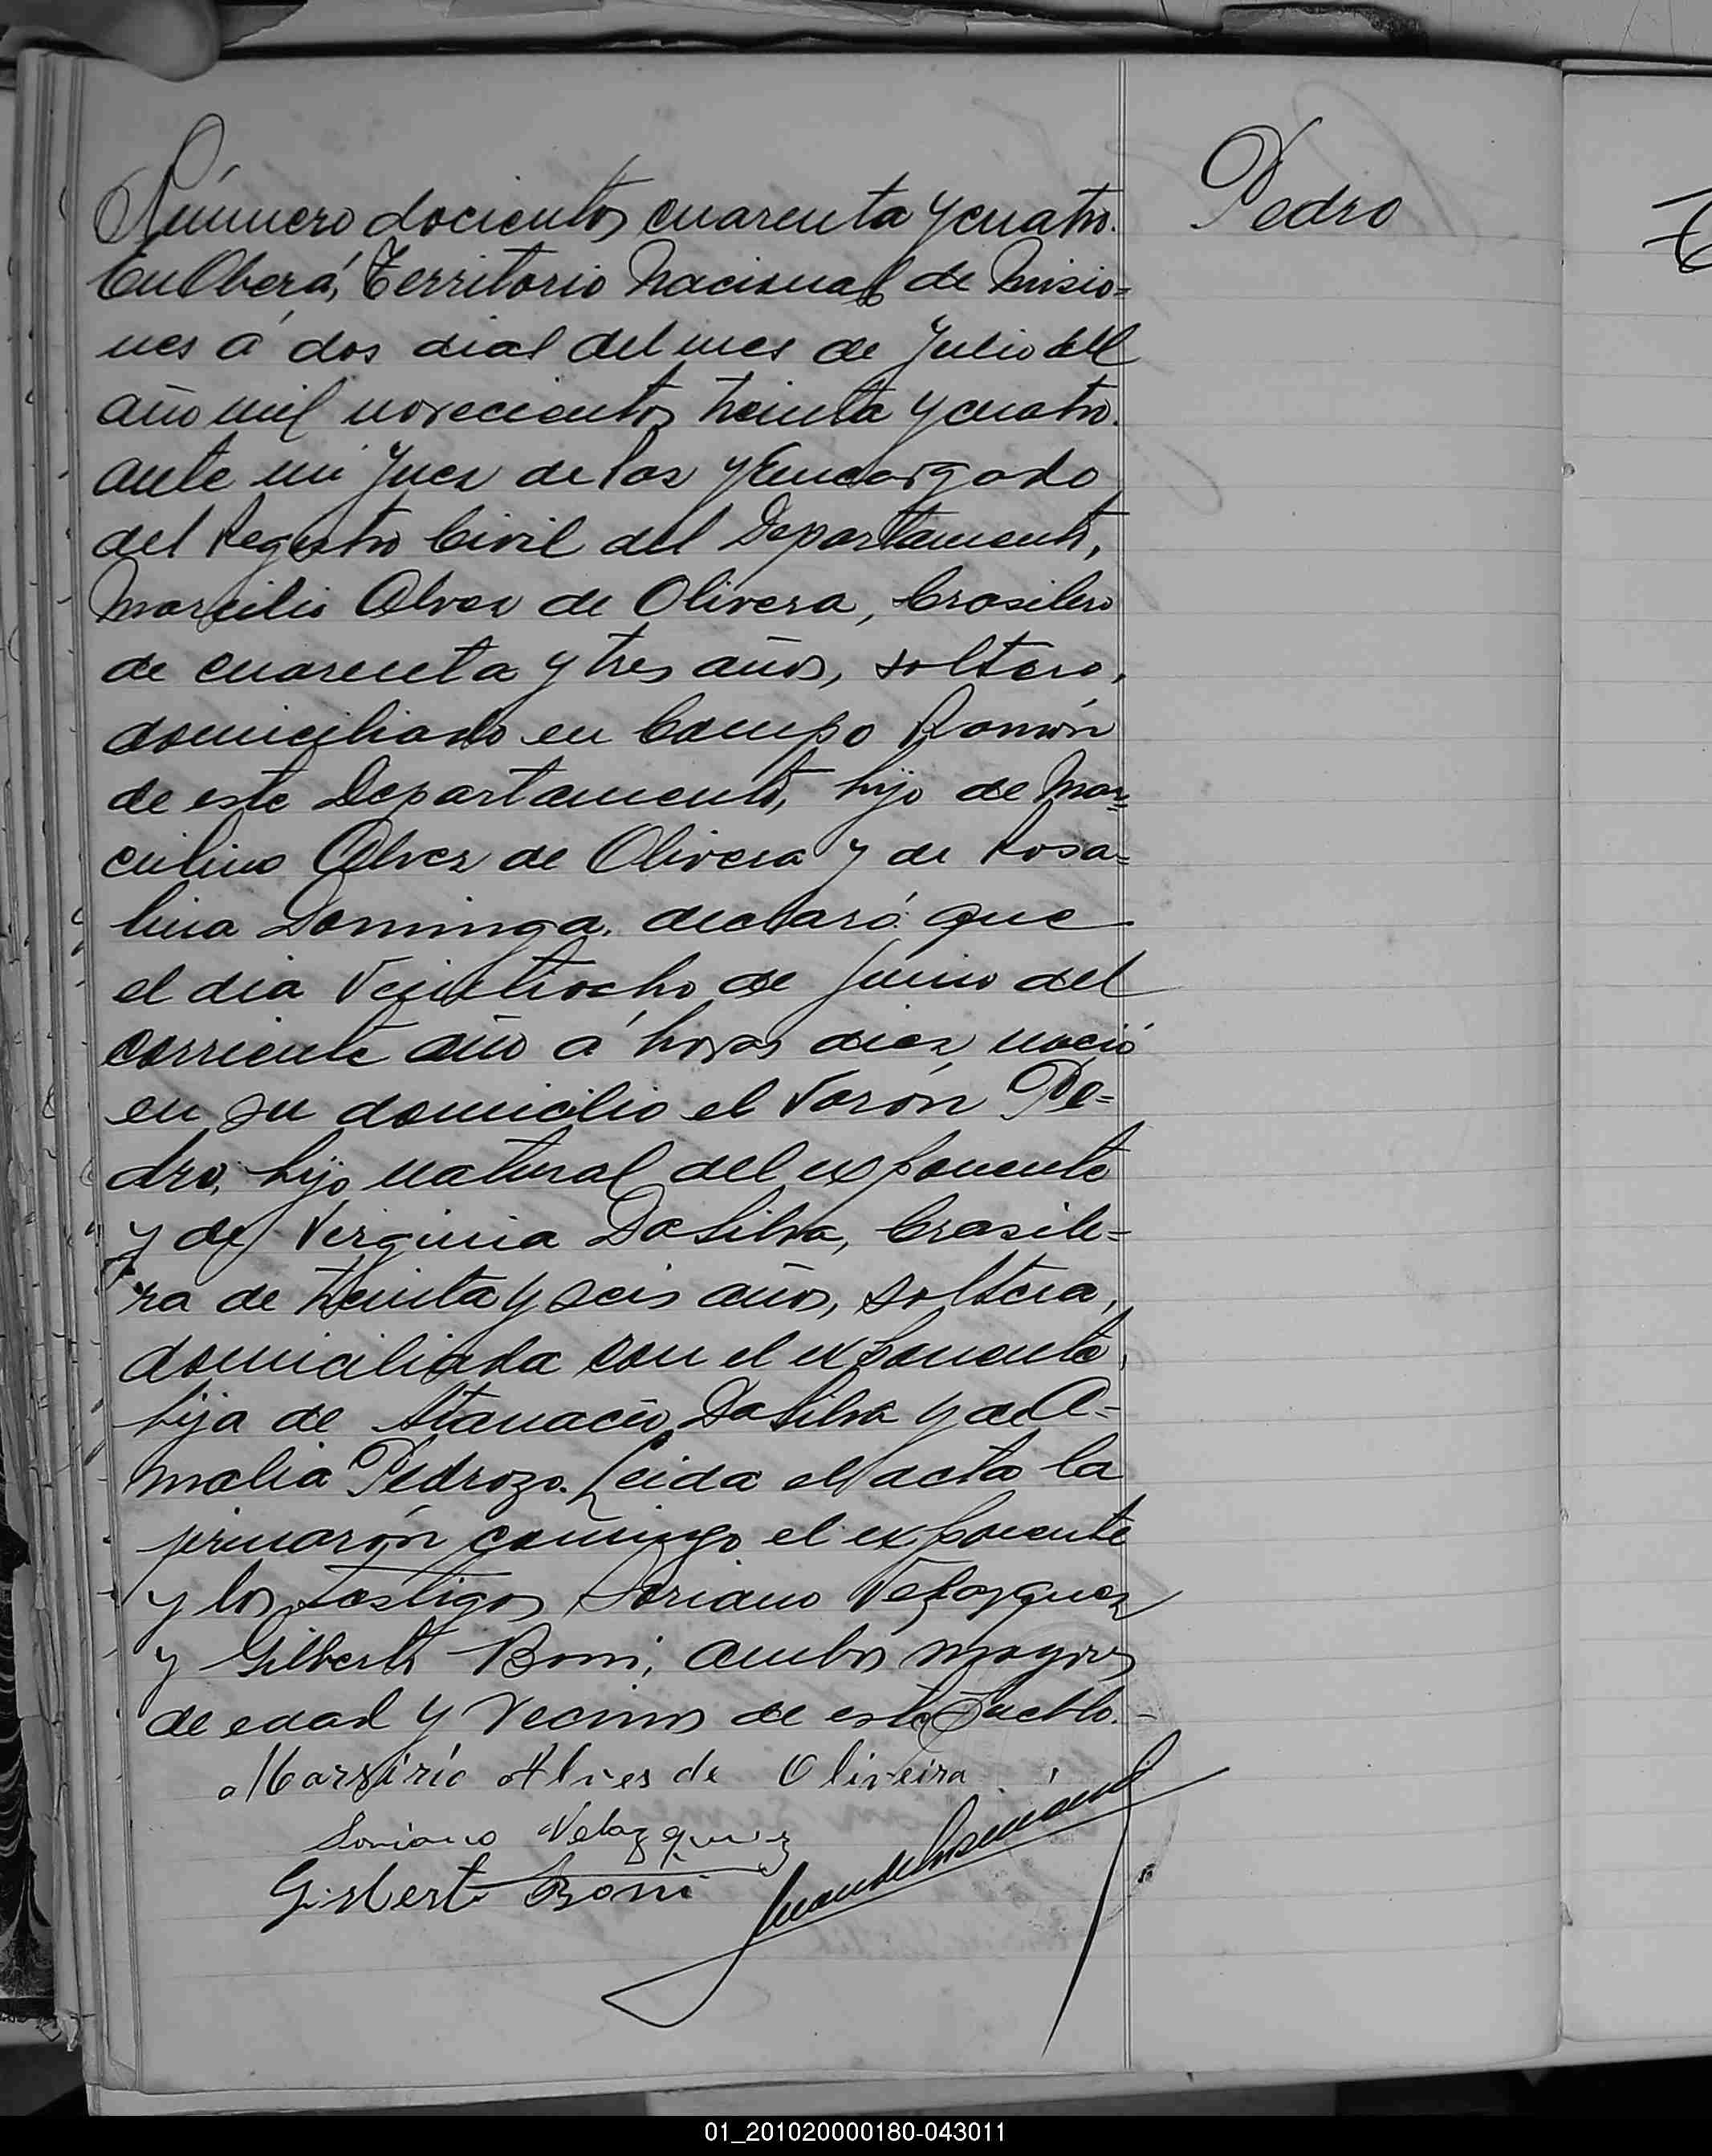 Número docientos cuarenta y cuatro.
Pedro
En Oberá, Territorio Nacional de Misio=
nes á dos dias del mes de Julio del
año mil novecientos treinta y cuatro.
ante mi Juez de Paz y Encargado
del Registro Civil del Departamento,
Marcilio Alvez de Olivera, brasilero
de cuarenta y tres años, soltero,
domiciliado en Campo Ramón
de este Departamento, hijo de Mar=
culino Alvez de Olivera y de Rosa=
lina Dominga. declaró: que
el dia Veintiocho de Junio del
corriente año á horas diez, nació
en su domicilio el Varón Pe=
dro, hijo natural del exponente
y de Verginia DaSilva, brasile=
ra de treinta y seis años, soltera,
domiciliada con el exponente,
hija de Atanacio DaSilva y de A=
malia Pedrozo. Leida el acta la
firmarón conmigo el exponente
y los testigos Soriano Velazquez
y Gilberto Boni, ambos mayores
de edad y Vecinos de este Pueblo.-
Marsirio Alves de Oliveira
Soriano Velazquez
Gisberto Boni
01_201020000180-043011